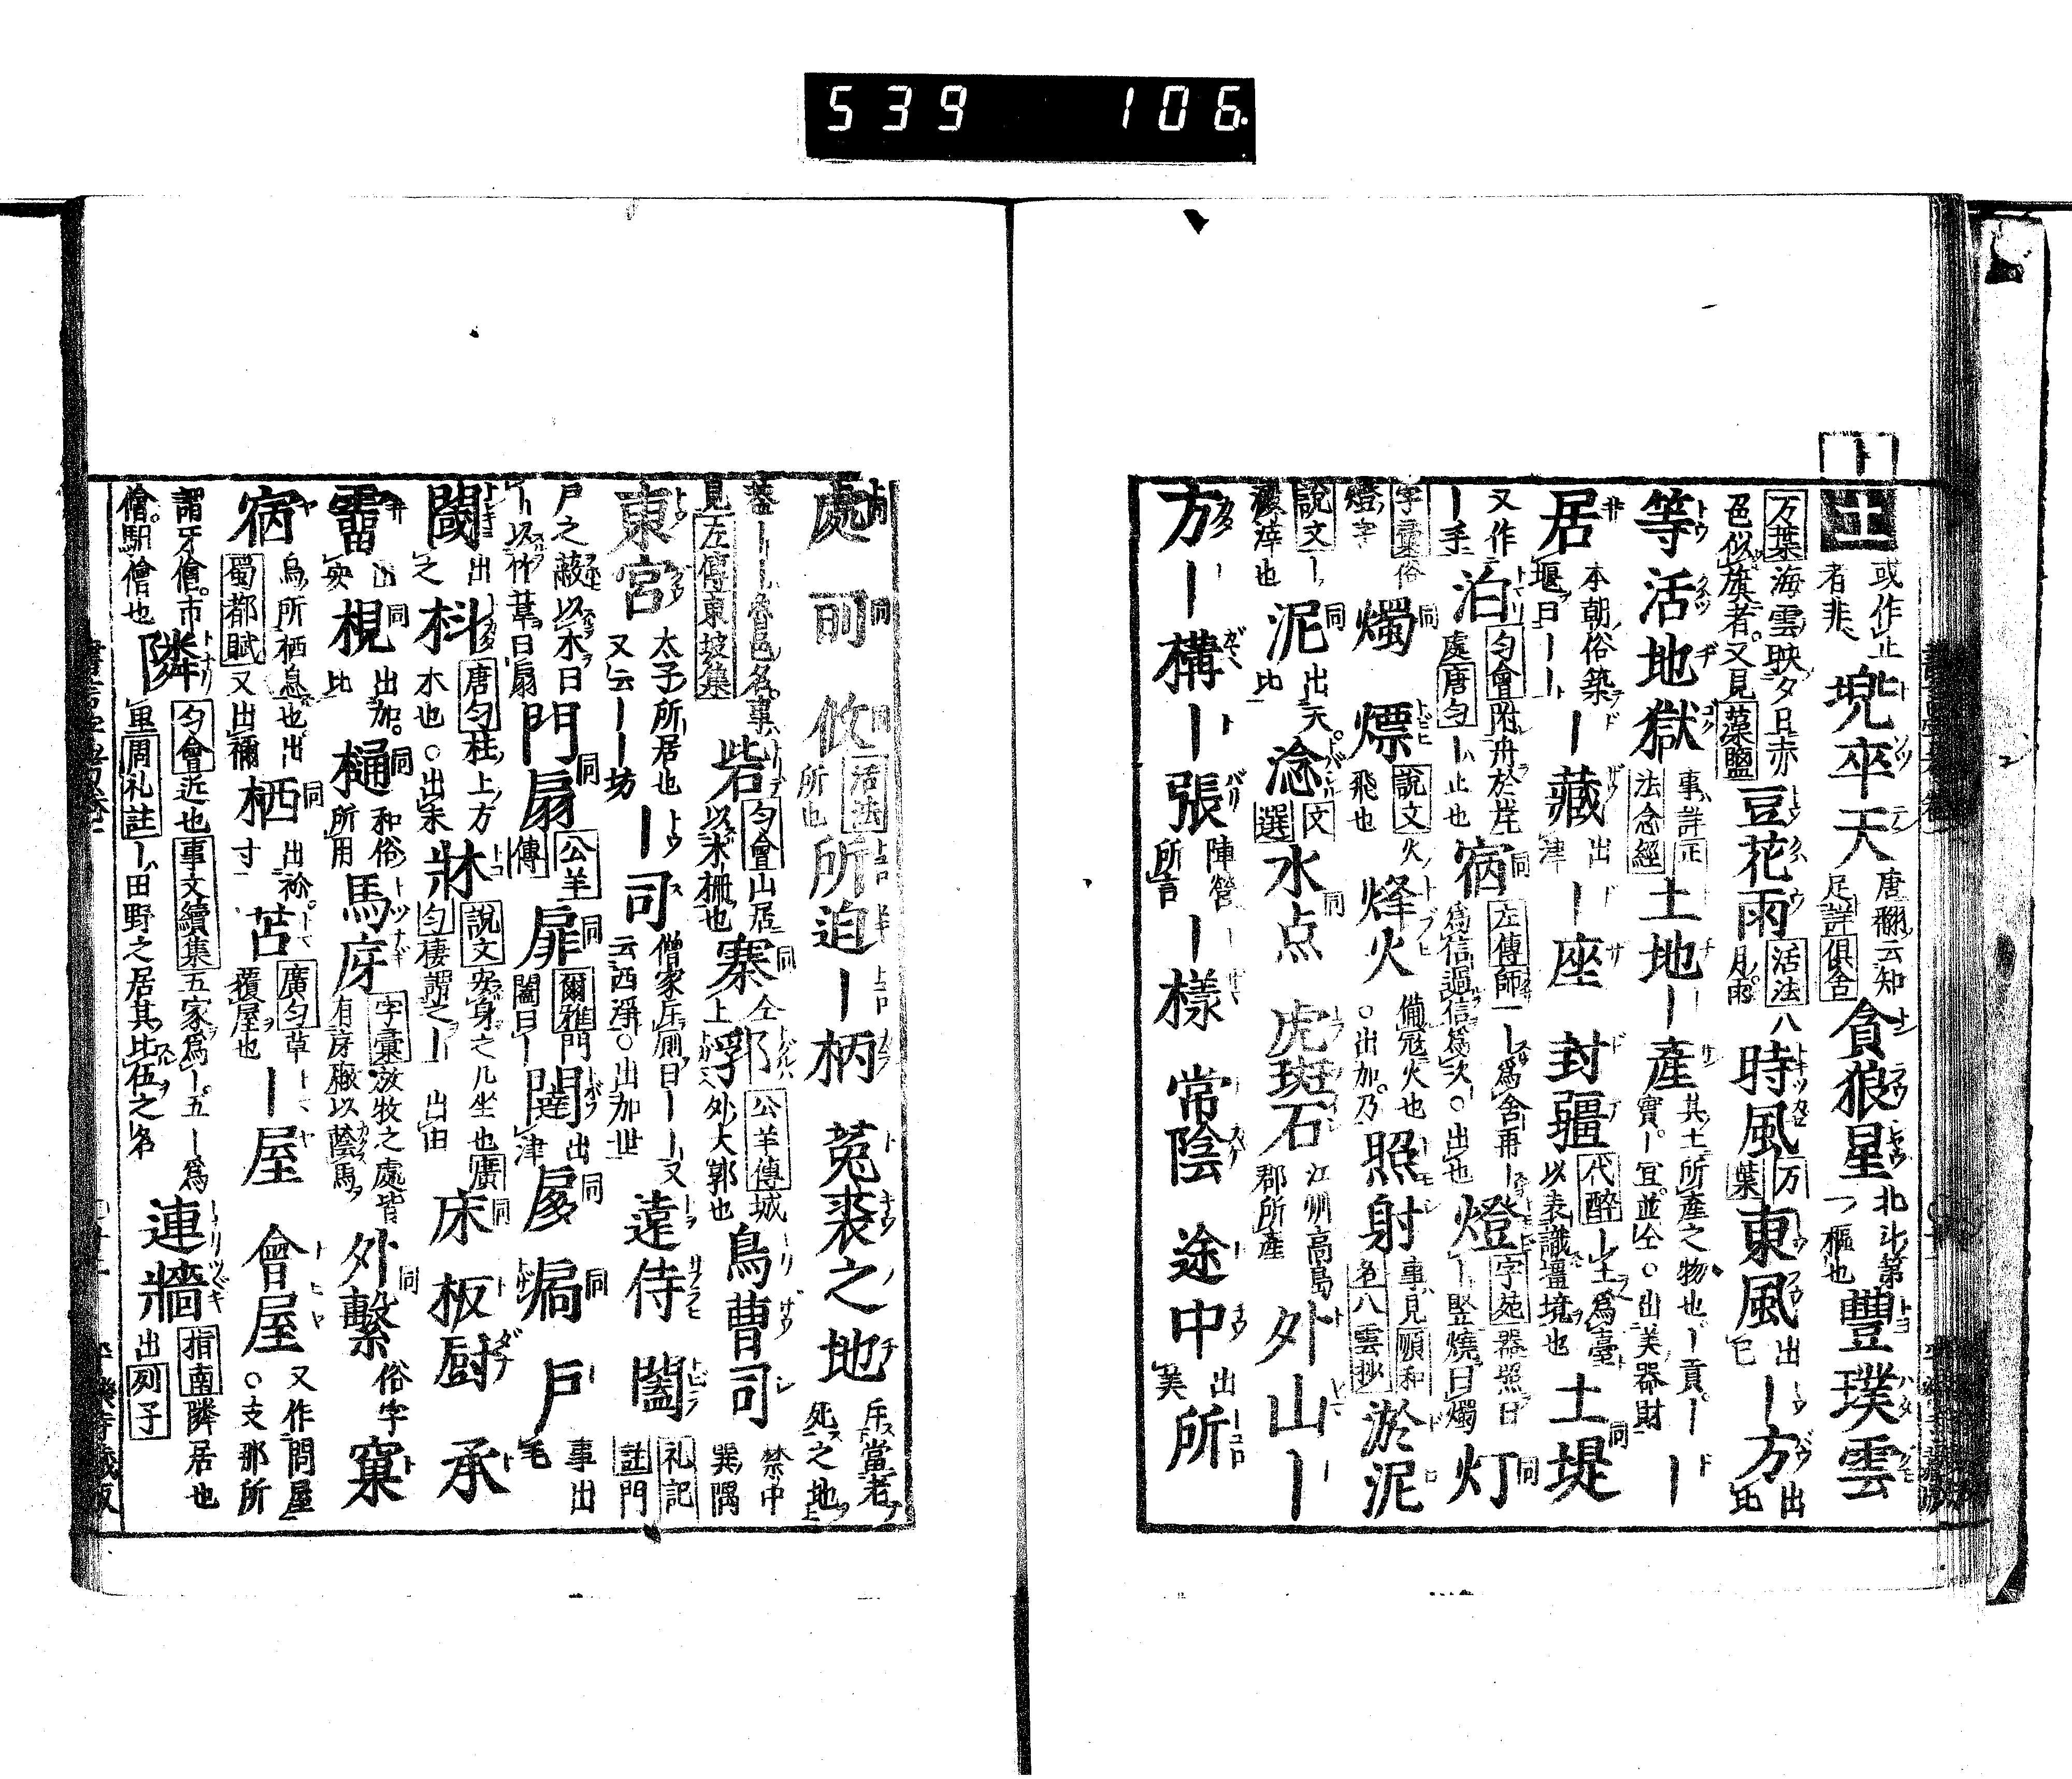 539 106
ト
土 或作止者非 兜卒天 唐翻云知足詳俱舍 貪狼星 北斗第一樞也 豐璞雲
万葉海雲映夕日赤色似旗者又見藻鹽 豆花雨 活法八月雨 時風 万葉 東風 出巳 ー方 出比
等活地獄 事詳正法念經 土地ー產 其土所產之物也ー貢ーー實ー宜並仝○出美器財
居 本朝俗築堰曰ーー ー藏 出津 ー座 封疆 代醉ー土爲臺以表識壇境也 土堤
又作ー手 泊 匀會附舟於岸處唐匀ー止也 宿 左傳師一ー爲舍再ー爲信過信爲次○出也 燈 字苑器照曰ー竪燒曰燭 灯
字彙俗燈字 燭 熛 說文火飛也 烽火 備冦火也○出加乃 照射 事見順和名八雲抄 淤泥
說文ー滓也 泥 出天比 淰 文選 水点 虎斑石 江州高島郡所產 外山ー
方ー構ー張 陣營所言 ー樣 常陰 途中 出美 所
處 攸 活法所也 所迫ー柄 菟裘之地 斥當者死之地上
蓋ーーー魯邑名事見左傳東坡集 砦 匀會山居以木柵也 寨 仝上 郛 公羊傳城外大郭也 鳥曹司 禁中巽隅
東宮 太子所居也又云ーー坊 ー司 僧家斥廁曰ーー又云西淨○出加世 遠侍 闔 礼記註門
戸之蔽以木曰ー以竹葦曰扇 門扇 公羊傳 扉 爾雅門闔曰ー 闥 出津 扃 戸 事出毛
閾 出之 枓 唐匀柱上方木也○出朱 牀 說文安身之几坐也廣匀棲謂之ー出由 床 板厨 承
霤 梘 出加比 樋 和俗所用 馬庌 字彙放牧之處皆有庌廠以蔭馬 外繫 俗字 窠
宿 鳥所栖息也出蜀都賦又出禰 栖 出袮寸 苫 廣匀草覆屋也 ー屋 會屋 又作問屋○支那所
謂牙儈市儈駔儈也 隣 匀會近也事文續集五家爲ー五ー爲里周礼註ー田野之居其比伍之名 連牆 指南隣居也出列子